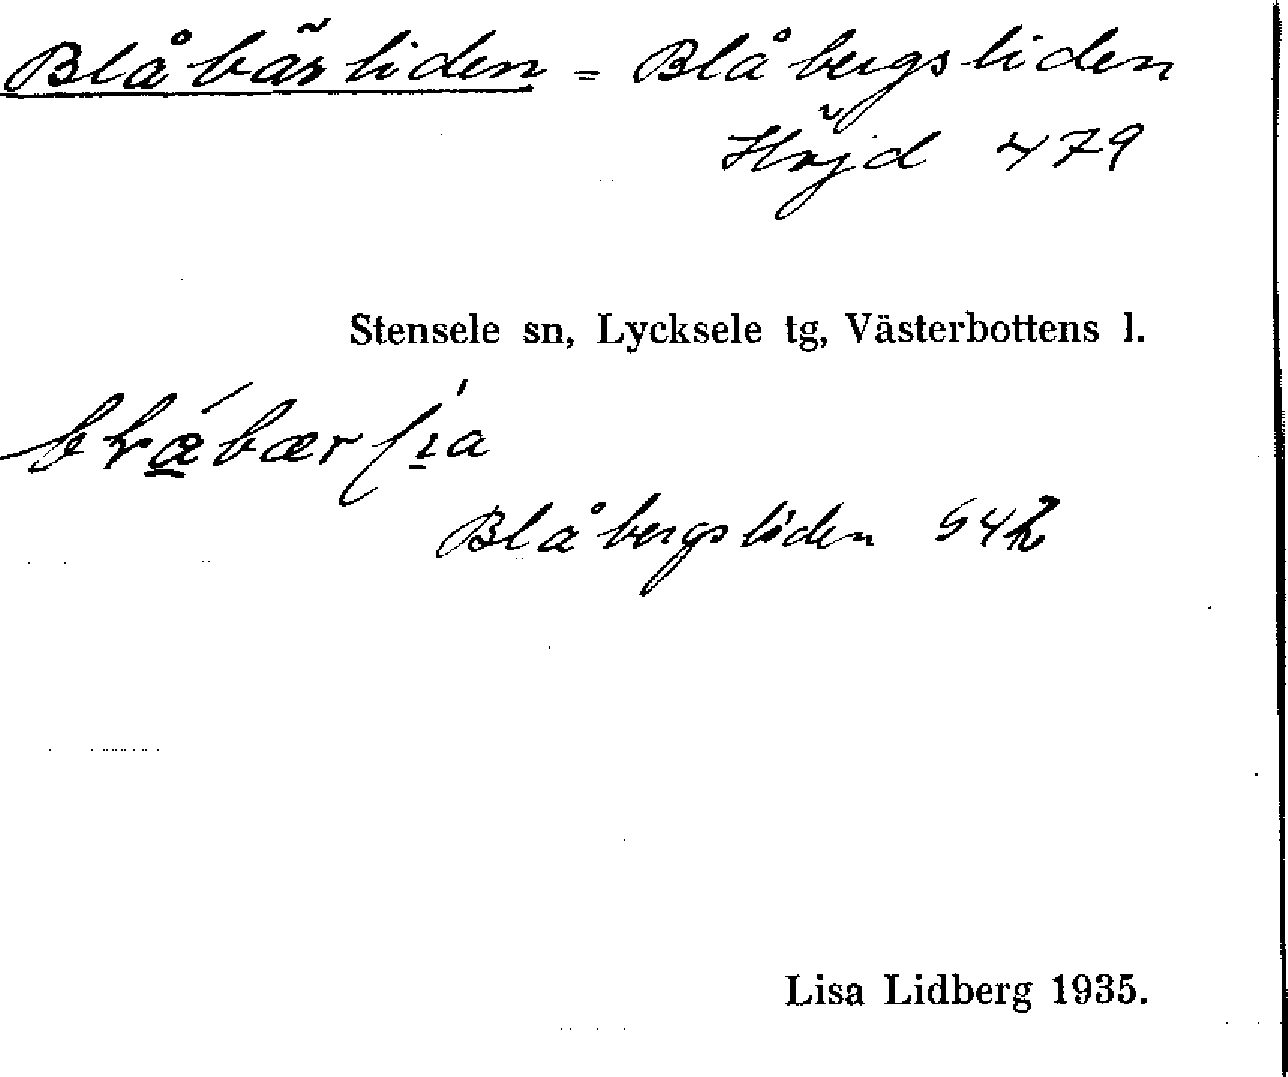 Blåbärsliden = Blåbergsliden
Höjd 479
Stensele sn, Lycksele tg, Västerbottens l.
Blåbergsliden 542
Lisa Lidberg 1935.